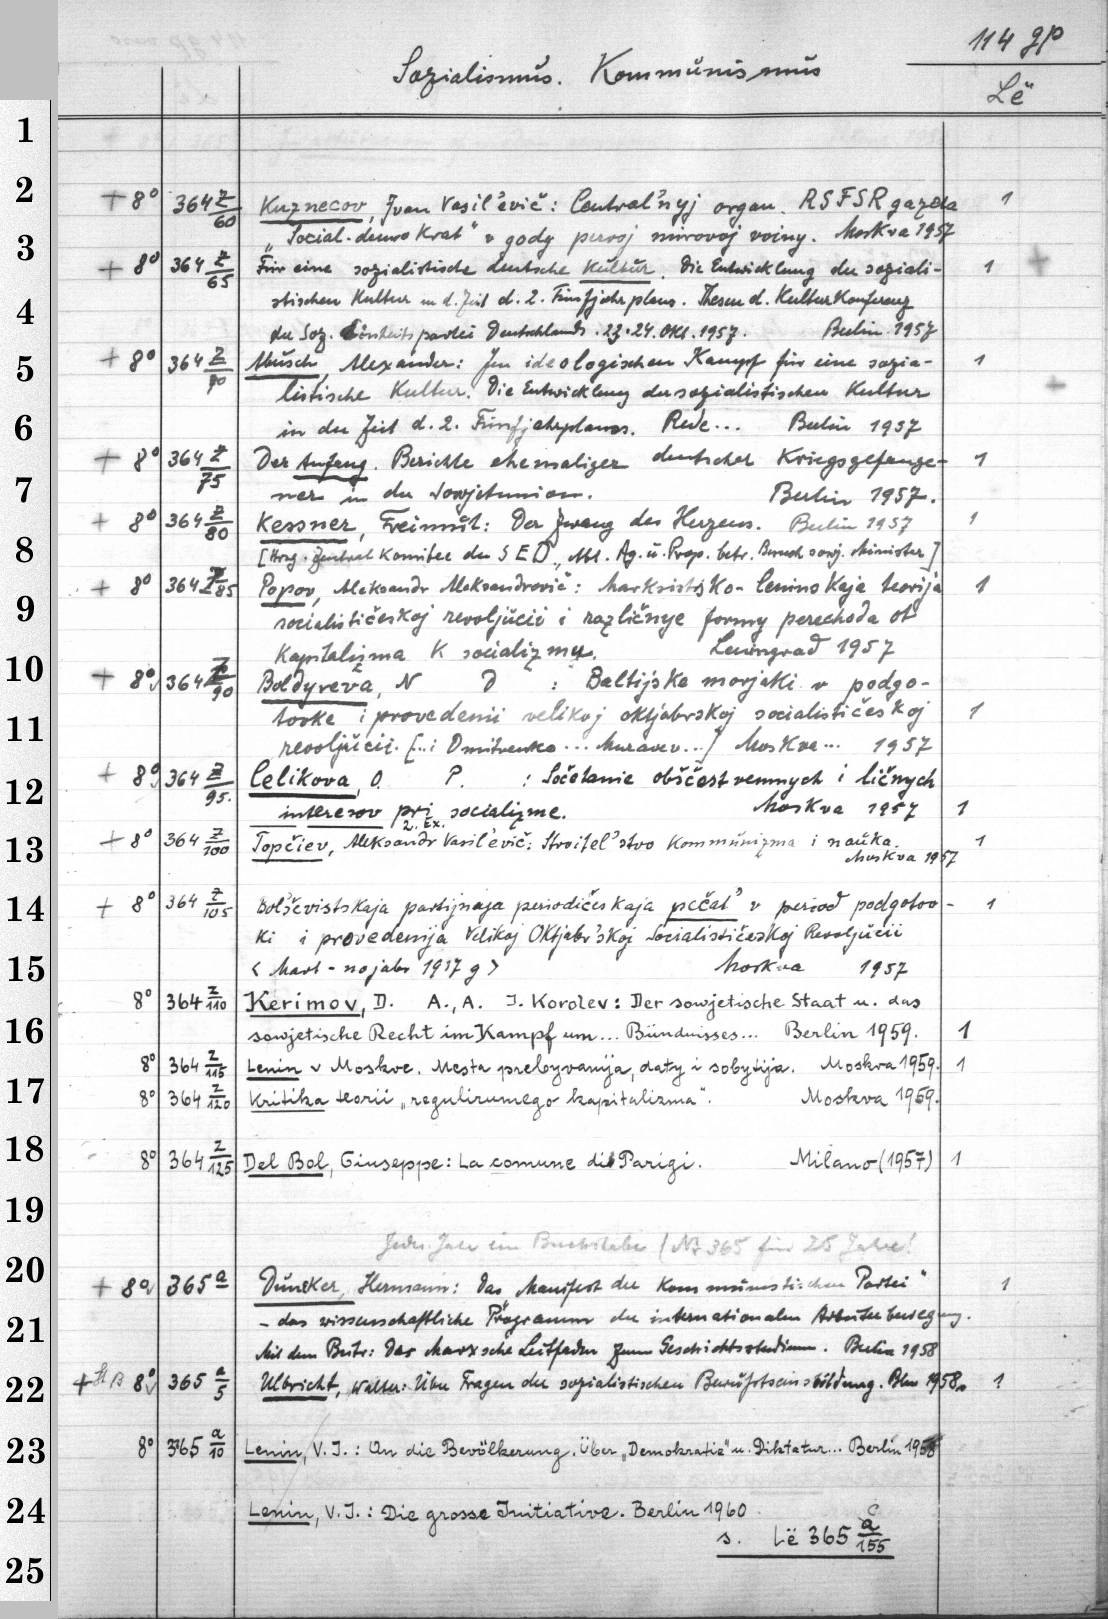 114 gp
Sozialismus. Kommunismus
Lë
1
2
+ 8° 364 Z/60 Kuznecov, Ivan Vasil'evič: Central'nyj organ RSFSR gazeta 1
3
„Social-demokrat" v gody pervoj mirovoj vojny. Moskva 1957
+ 8° 364 Z/65 Für eine sozialistische deutsche Kultur. Die Entwicklung der soziali- 1 +
4
stischen Kultur in d. Zeit d. 2. Fünfjahrplans. Thesen d. Kulturkonferenz
der Soz. Einheitspartei Deutschlands. 23.-24. Okt. 1957. Berlin 1957
5
+ 8° 364 Z/70 Abusch, Alexander: Im ideologischen Kampf für eine sozia- 1
listische Kultur. Die Entwicklung der sozialistischen Kultur +
6
in der Zeit d. 2. Fünfjahrplans. Rede... Berlin 1957
+ 8° 364 Z/75 Der Anfang. Berichte ehemaliger deutscher Kriegsgefange- 1
7
ner in der Sowjetunion. Berlin 1957.
+ 8° 364 Z/80 Kessner, Freimut: Der Zwang des Herzens. Berlin 1957 1
8
[Hrsg. Zentral Komitee der SED, Abt. Ag. u. Prop. betr. Besuch sowj. Minister]
+ 8° 364 Z/85 Popov, Aleksandr Aleksandrovič: Marksistsko-leninskaja teorija 1
9
socialističeskoj revoljucii i različnye formy perechoda ot
kapitalizma k socializmu. Leningrad 1957
10
+ 8° 364 Z/90 Boldyreva, N D : Baltijske morjaki v podgo-
11
tovke i provedenii velikoj oktjabrskoj socialističeskoj 1
revoljucii. [..i Dmitrenko ... Muravev...] Moskva... 1957
12
+ 8° 364 Z/95. Celikova, O. P. : Sočetanie obščestvennych i ličnych
interesov pri socializme. Moskva 1957 1
2. Ex.
13
+ 8° 364 Z/100 Topčiev, Aleksandr Vasil'evič: Stroitel'stvo kommunizma i nauka. 1
Moskva 1957
14
+ 8° 364 Z/105 Bol'ševistskaja partijnaja periodičeskaja pečat' v period podgotov- 1
ki i provedenija Velikoj Oktjabr'skoj Socialističeskoj Revoljucii
15
< Mart - nojabr 1917 g > Moskva 1957
8° 364 Z/110 Kerimov, D. A., A. I. Korolev: Der sowjetische Staat u. das
16
sowjetische Recht im Kampf um... Bündnisses... Berlin 1959. 1
8° 364 Z/115 Lenin v Moskve. Mesta prebyvanija, daty i sobytija. Moskva 1959. 1
17
8° 364 Z/120 Kritika teorii „regulirumego kapitalizma". Moskva 1959.
18
8° 364 Z/125 Del Bol, Giuseppe: La comune di Parigi. Milano (1957) 1
19
Jedes Jahr ein Buchstabe (Nr 365 für 25 Jahre!
20
+ 8° 365 a Duncker, Hermann: Das „Manifest der Kommunistischen Partei" 1
21
- das wissenschaftliche Programm der internationalen Arbeiterbewegung.
Mit dem Beitr.: Der Marxsche Leitfaden zum Geschichtsstudium. Berlin 1958
22
+ 8° 365 a/5 Ulbricht, Walter: Über Fragen der sozialistischen Berufsausbildung. Bln 1958. 1
23
8° 365 a/10 Lenin, V. I.: An die Bevölkerung. Über „Demokratie" u. Diktatur... Berlin 1958
24
Lenin, V. I.: Die grosse Initiative. Berlin 1960
s. Lë 365 c/155
25